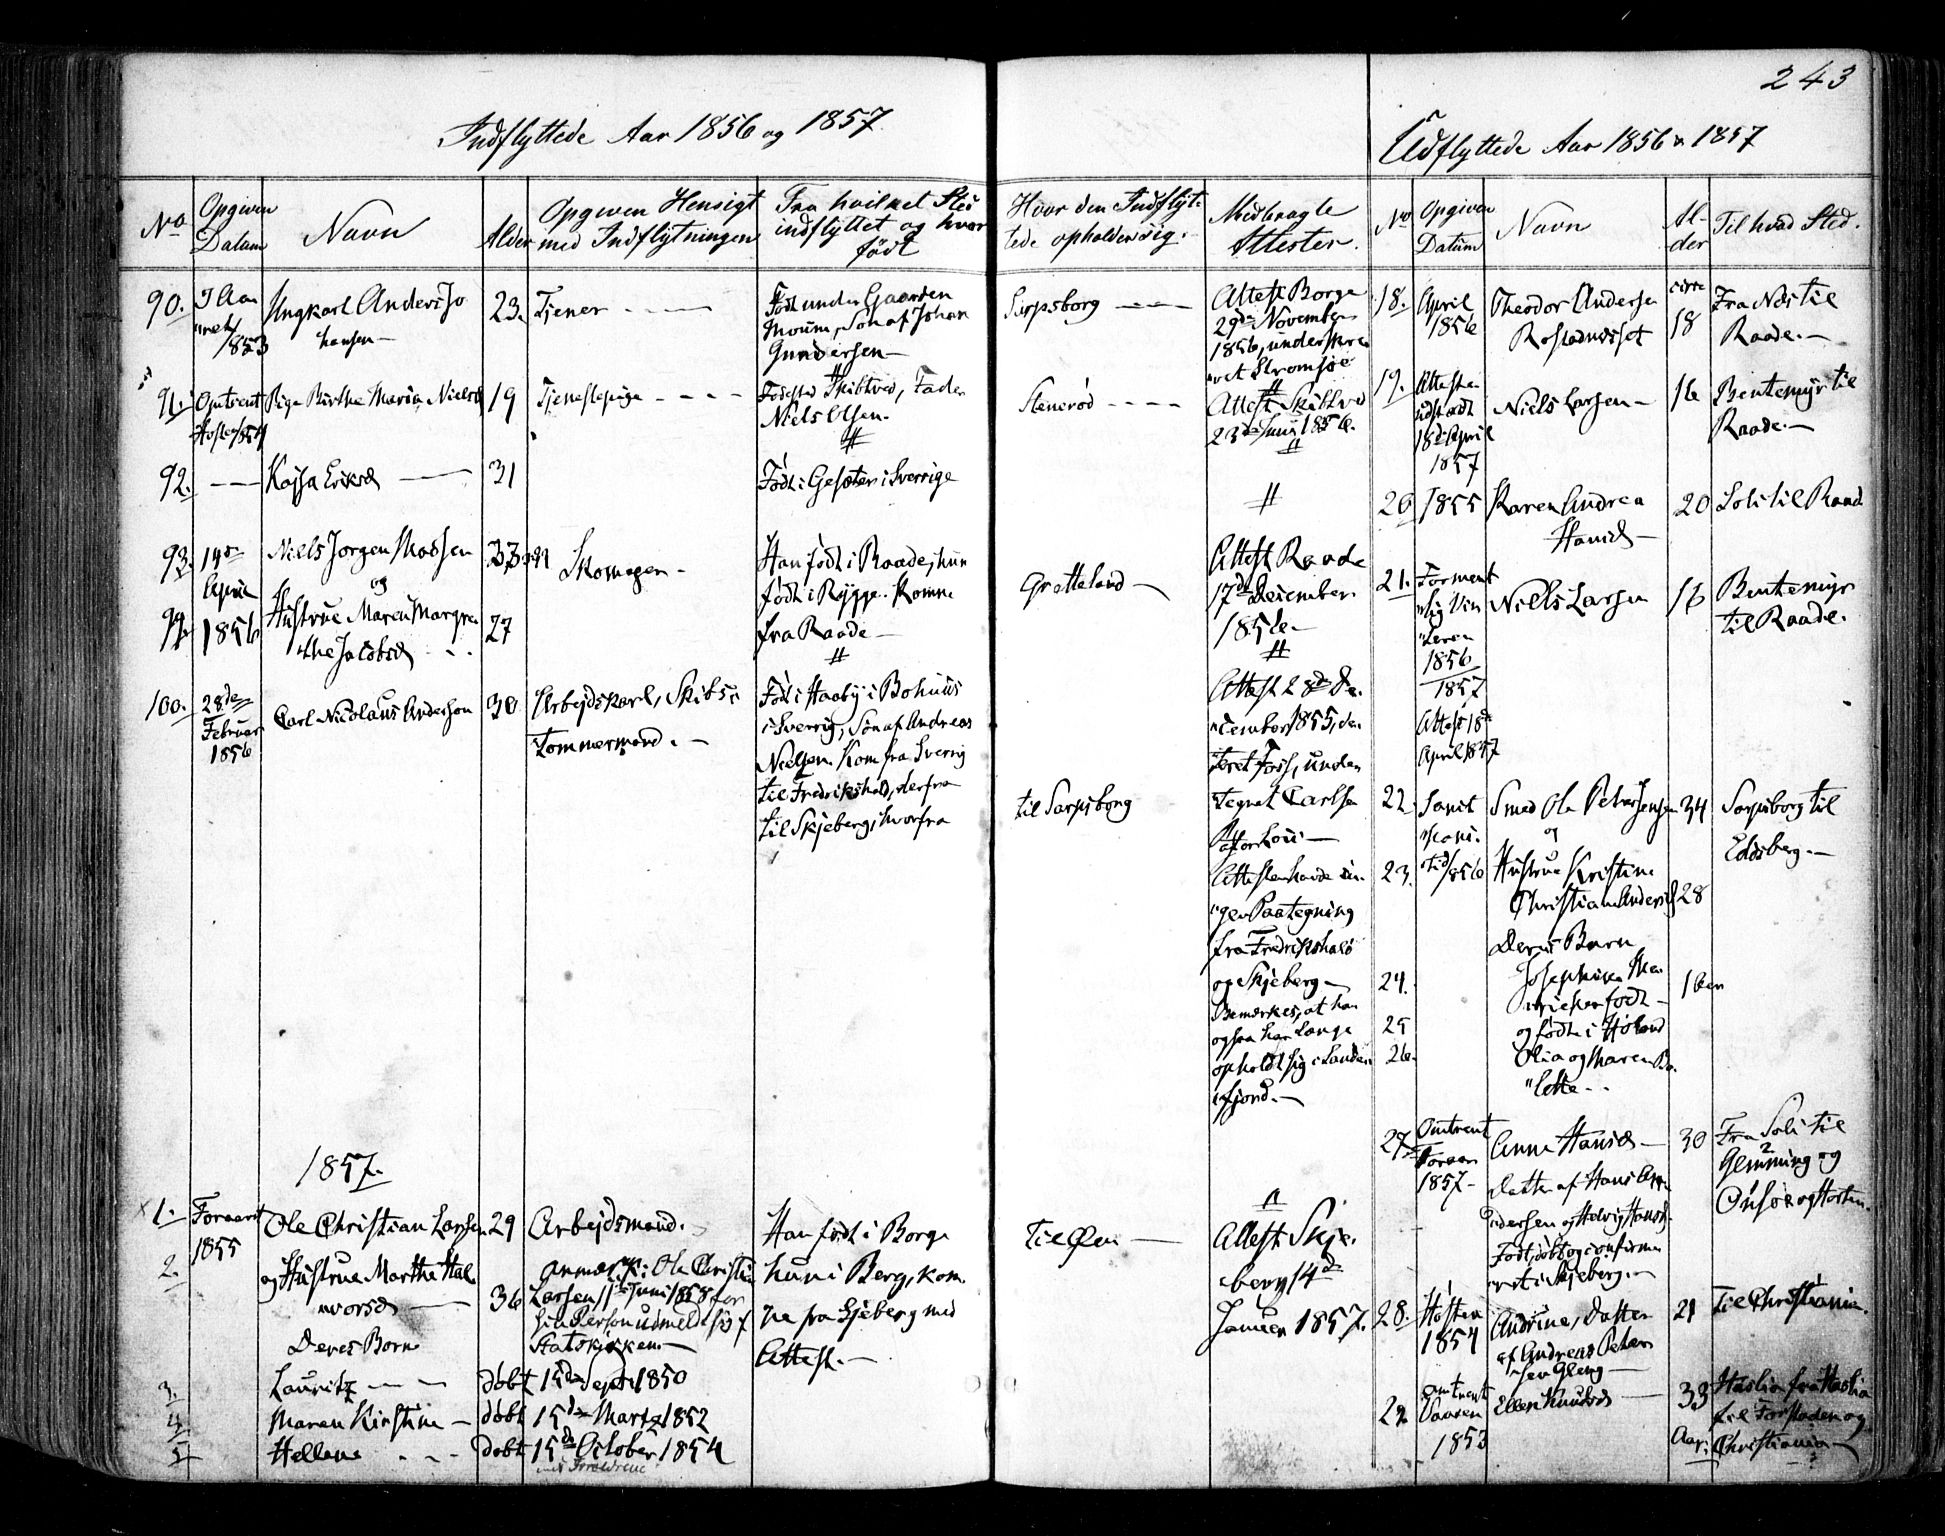 243
Indflyttede Aar 1856 og 1857.
Udflyttede Aar 1856 & 1857
No
Opgiven Datum
Navn
Alder
Opgiven Hensigt med Indflytningen
Fra hvilket Sted indflyttet og hvor født
Hvor den Indflyttede opholder sig.
Medbragte Attester.
No
Opgiven Datum
Navn
Alder
Til hvad Sted.
90.
1853
Ungkarl Anders Johansen —
23.
Tjener
Født under Gaarden
Moum, Søn af Johan
Gundersen —
Sarpsborg
Attest Borge
29de November
1856, underskre-
vet Strømsøe
91.
Omtrent
Høsten 1854
Pige Birthe Maria Nielsd
19
Tjenestepige
Fødested Skibtved, Fader
Niels Olsen.
Stenerød
Attest Skibtved
23de Juny 1856.
92.
Kajsa Eriksd
31
Født i Gesæter i Sverrige
93.
14de
April
1856
Niels Jørgen Madsen
og
Hustrue Maren Margre-
the Jacobsd
33
27
Han født i Raade, hun
født i Rygge. Komne
fra Raade —
Grøtteland —
Attest Raade
17de December
1856. —
100.
28de
Februar
1856
Carl Nicolaus Anderson
30
Arbejdskarl, Skibs-
Tømmermand. —
Født i Haaby i Bohuus
i Sverrig, Søn af Andreas
Nielsen. Kom fra Sverrig
til Fredrikshald, derfra
til Skjeberg, hvorfra
til Sarpsborg
Attest 28de De-
cember 1855, da-
teret Foss, under-
tegnet Carlson
Pastor Loci —
Attesten havde in-
gen Paategning
fra Fredrikshald
og Skjeberg —
Bemærkes, at han
ogsaa har længe
opholdt sig i Sande-
fjord. —
1857.
1.
Foraaret
1855
Ole Christian Larsen
29
Arbejdsmand.
Han født i Borge
Til Øen —
Attest Skje-
berg 14de
Januar 1857.
2.
og Hustrue Marthe Hal-
vorsd
36
anmærk: Ole Christian
Larsen 11te Juni 1858 for
sin Person udmeldt sig af
Statskirken. —
hun i Berg, kom-
ne fra Skjeberg med
Attest. —
Deres Børn
3.
Lauritz
døbt 15de Sept 1850
4.
Maren Kirstine —
døbt 15de Marts 1852
5.
Hellene
døbt 15de October 1854
18.
April
1856
Theodor Andersen
cirka
18
Fra Næs til
Raade. —
19.
Attesten
udstædt
18de April
1857
Niels Larsen —
16
Bentemyr til
Raade. —
20
1855
Karen Andrea
Hansd —
20
Soli til Raade
21.
Forment-
lig Vin-
teren
1856
1857
Attest 18de
April 1857
Niels Larsen
16
Bentemyr
til Raade.
22.
1856
Smed Ole Peter Jensen
og
34
Sarpsborg til
Eidsberg. —
23.
Hustrue Kristine
Christiane Andersd
28
Deres Børn
24.
Josephine
født
25
og født i Høland
26.
Olia og Maren
27.
Omtrent
Foraar
1857 —
Anne Hansd —
Datter af Hans
og Hedvig Hansd.
Født, døbt og confirme-
ret i Skjeberg. —
30
Fra Soli til
Glemming og
Onsøe og Horten.
28.
Høsten
1854
Andrine, Datter
af Andreas Peter-
sen Gleng —
21
Til Christiania.
29.
Omtrent
Vaaren
1853
Ellen Knudsd —
33
Aar.
Haslia fra Haslia
til Forstaden og
Christiania —